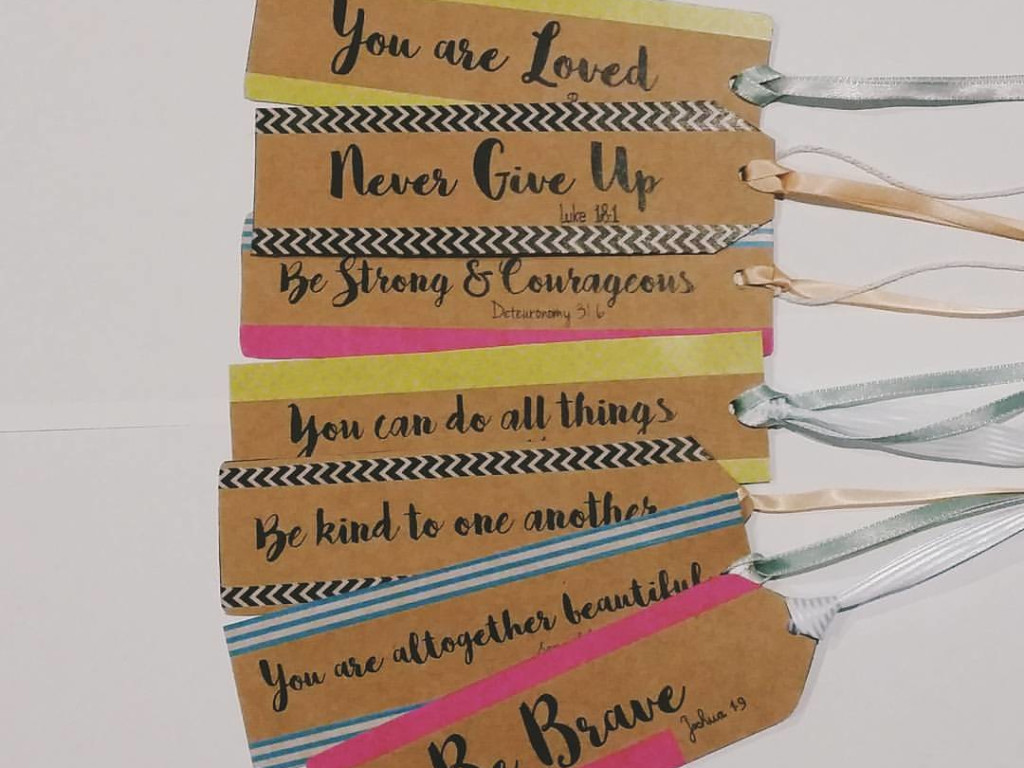 You are Loved
Never Give Up
Luke 18:1
Be Strong & Courageous
Deteuronomy 31:6
You can do all things
Be kind to one another
You are altogether beautiful
Be Brave
Joshua 1:9